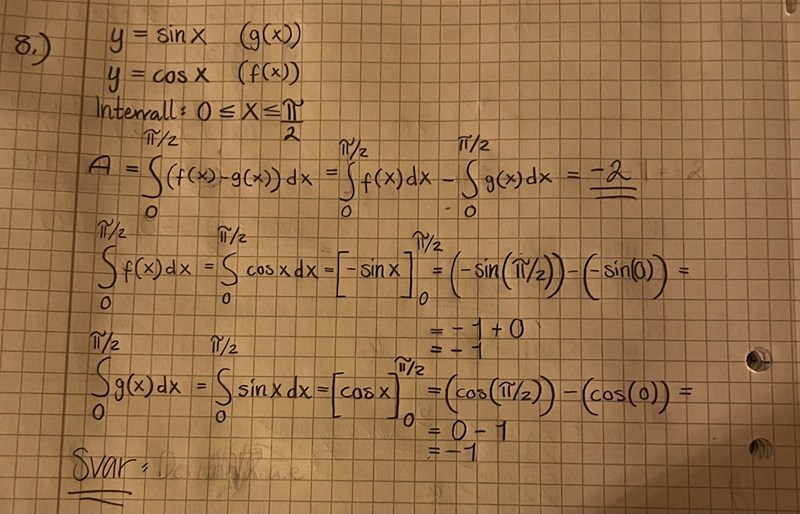 8.) y = sin x (g(x))
y = cos x (f(x))
Intervall: 0 ≤ x ≤ π/2
A = ∫₀^π/2 (f(x)-g(x)) dx = ∫₀^π/2 f(x) dx - ∫₀^π/2 g(x) dx = -2
∫₀^π/2 f(x) dx = ∫₀^π/2 cos x dx = [-sin x]₀^π/2 = (-sin(π/2)) - (-sin(0)) =
= -1 + 0
= -1
∫₀^π/2 g(x) dx = ∫₀^π/2 sin x dx = [cos x]₀^π/2 = (cos(π/2)) - (cos(0)) =
= 0 - 1
= -1
Svar: